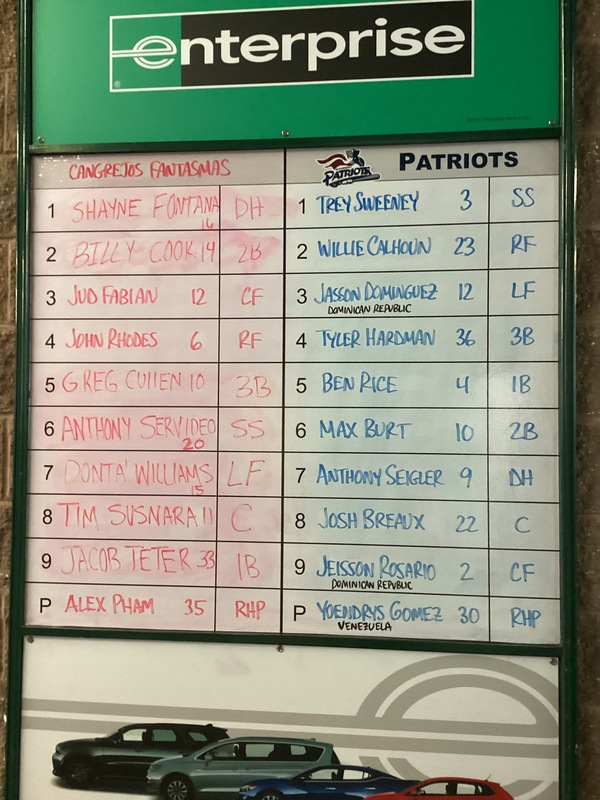 enterprise
CANGREJOS FANTASMAS
1 SHAYNE FONTANA 16 DH
2 BILLY COOK 19 2B
3 JUD FABIAN 12 CF
4 JOHN RHODES 6 RF
5 GREG CULLEN 10 3B
6 ANTHONY SERVIDEO 20 SS
7 DONTA' WILLIAMS 15 LF
8 TIM SUSNARA 11 C
9 JACOB TETER 33 1B
P ALEX PHAM 35 RHP
PATRIOTS PATRIOTS
1 TREY SWEENEY 3 SS
2 WILLIE CALHOUN 23 RF
3 JASSON DOMINGUEZ 12 LF
DOMINICAN REPUBLIC
4 TYLER HARDMAN 36 3B
5 BEN RICE 4 1B
6 MAX BURT 10 2B
7 ANTHONY SEIGLER 9 DH
8 JOSH BREAUX 22 C
9 JEISSON ROSARIO 2 CF
DOMINICAN REPUBLIC
P YOENDRYS GOMEZ 30 RHP
VENEZUELA